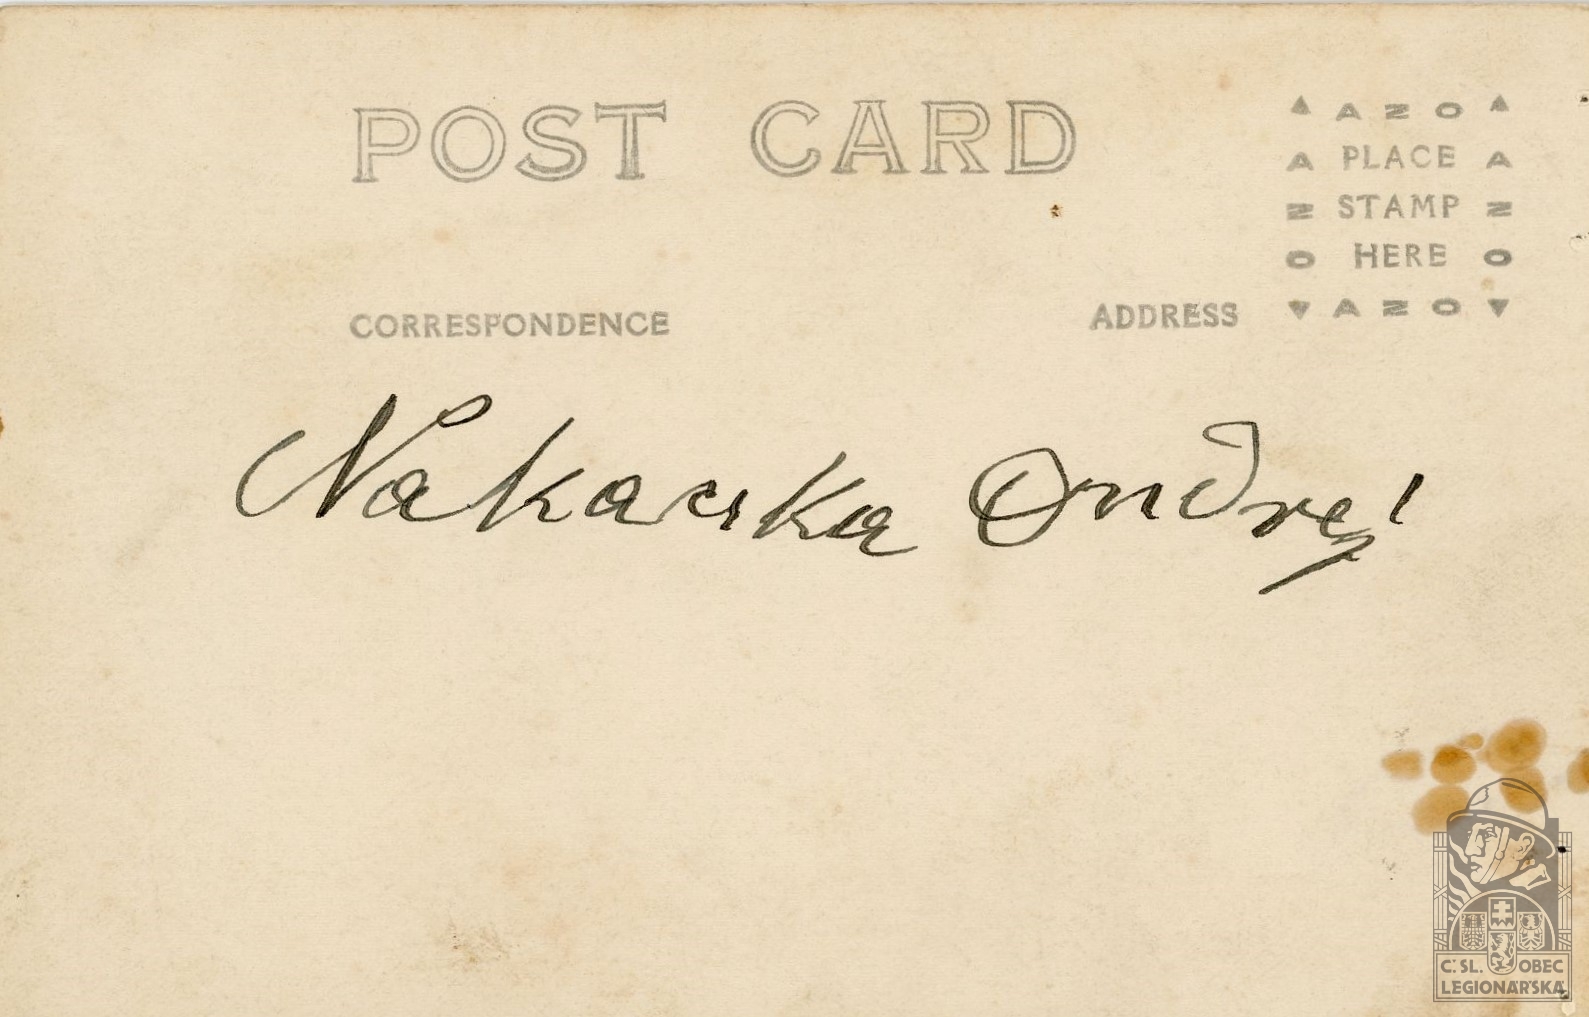 POST CARD
▲ AZO ▲
A PLACE A
Z STAMP Z
O HERE O
▼ AZO ▼
CORRESPONDENCE
ADDRESS
Nakacska Ondrej
Č.SL. OBEC
LEGIONÁŘSKÁ